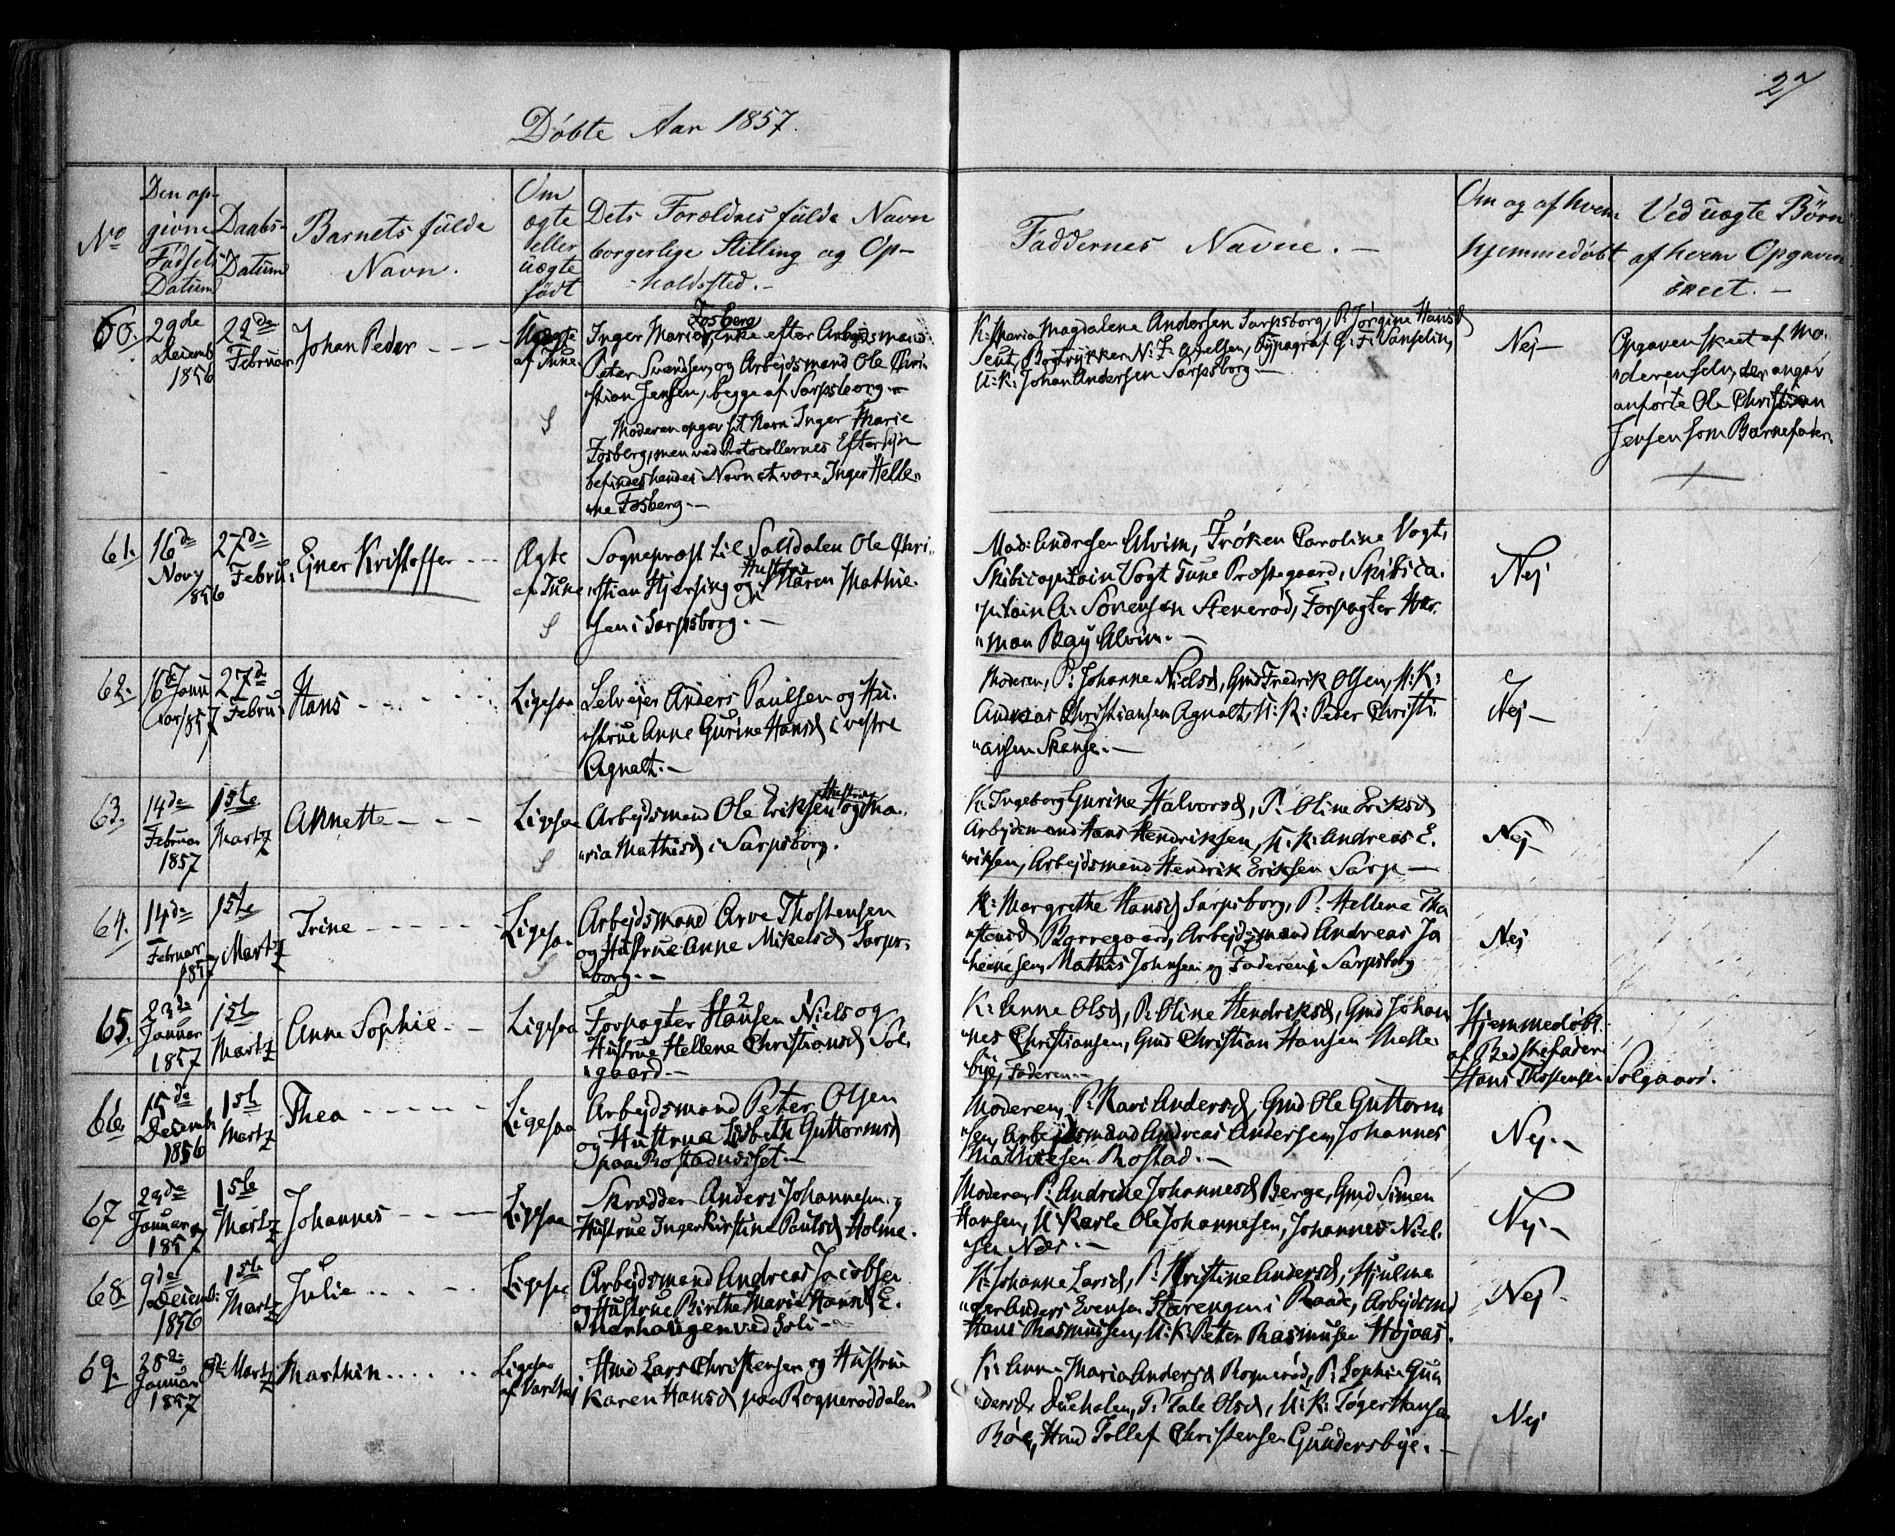 27
Døbte Aar 1857.
No
Den op-
givne
Fødsels
Datum
Daabs-
Datum
Barnets fulde
Navn.
Om
ægte
eller
uægte
født
Dets Forældres fulde Navn
borgerlige Stilling og Op-
holdssted.-
Faddernes Navne.-
Om og af hvem
hjemmedøbt
Ved uægte Børn
af hvem Opgaven
skeet.-
60.
29de
Decemb
1856
22de
Februar
Johan Peder
Uægte
af Tune
Fosberg
Inger Marie, enke efter Arbejdsmand
Peter Svendsen, og Arbejdsmand Ole Chri-
stian Jensen, begge af Sarpsborg.-
Moderen opgav sit Navn Inger Marie
Fosberg, men ved Protocollernes Eftersyn
befindes hendes Navn at være Inger Helle-
ne Fosberg.-
K: Maria Magdalene Andersen Sarpsborg, P: Jørgine Hansd
Bogtrykker N: F: Axelsen, Typograf
U: K: Johan Andersen Sarpsborg-
Nej-
Opgaven skeet af Mo-
deren selv, der angav
anførte Ole Christian
Jensen som Barnefader.
61.
16de
Novr
1856
27de
Febru:
Ejner Kristoffer
Ægte
af Tune
S
Sognepræst til Saltdalen Ole Chri-
stian Hjersing og Hustrue Maren Mathie-
sen i Sarpsborg.-
Mad: Andresen Alvim, Frøken Caroline Vogt,
Skibscapitain Vogt Tune Præstegaard, Skibsca-
pitain A: Sørensen Stenerød, Forpagter Her-
man Bay Alvim.-
Nej
62.
16de Janu
ar 1857
27de
Febru
Hans
Ligesaa
Selvejer Anders Paulsen og Hu-
strue Anne Gurine Hansd i vestre
Agnalt.-
Moderen, P: Johanne Nielsd, Gmd Fredrik Olsen, U: K:
Andreas Christiansen Agnalt, U: K: Peder Christi-
ansen Skanse.-
Nej-
63.
14de
Februar
1857
1ste
Martz
Annette
Ligesaa
S
Arbejdsmand Ole Eriksen og Hustrue Ma-
ria Mathisd i Sarpsborg.
K: Ingeborg Gurine Halvorsd, P: Oline Eriksd
Arbejdsmand Hans Hendriksen, U: K: Andreas E-
riksen, Arbejdsmand Hendrik Eriksen Sarp-
Nej-
64.
14de
Februar
1857
1ste
Martz
Trine
Ligesaa
S
Arbejdsmand Arve Thostensen
og Hustrue Anne Mikelsd Sarps-
borg.-
K: Margrethe Hansd Sarpsborg, P: Hellene Tho
stensd Borregaard, Arbejdsmand Andreas Jo
hannesen, Mathis Johnsen og Faderen, Sarpsborg
Nej
65.
23de
Januar
1857
1ste
Martz
Anne Sophie
Ligesaa
Forpagter Hansen Niels og
Hustrue Hellene Christiansd Sol-
gaard-
K: Anne Olsd, P: Oline Hendriksd, Gmd Johan
nes Christiansen, Gmd Christian Hansen Melle-
bye, Faderen.-
Hjemmedøbt
af Bedstefader
Hans Thostensen Solgaard.
66
15de
Decemb
1856
1ste
Martz
Thea
Ligesaa
Arbejdsmand Peter Olsen
og Hustrue Lisbeth Guttormsd
paa Rostadnæsset.-
Moderen, P: Kari Andersd, Gmd Ole Guttorm
sen, Arbejdsmand Andreas Andersen, Johannes
Mathiesen Rostad.-
Nej.-
67
29de
Januar
1857
1ste
Martz
Johannes
Ligesaa
Skrædder Anders Johannesen og
Hustrue Inger Kirstine Paulsd Holme.
Moderen, P: Andrine Johannesd Berge, Gmd Simen
Hansen, U: Karle Ole Johannesen, Johannes Niel-
sen Næs.-
Nej-
68
9de
Decemb:
1856
1ste
Martz
Julie
Ligesaa
Arbejdsmand Andreas Jacobsen
og Hustrue Birthe Marie Hansd E-
nerhaugen ved Soli-
K: Johanne Larsd, P: Kristine Andersd, Hjulma-
ger Anders Evensen Starengen i Raade, Arbejdsmd
Hans Rasmussen, U: K: Peter Rasmusen Højaas.
Nej-
69.
28de
Januar
1857
Martz
Marthin
Ligesaa
af Varteig
Hmd Lars Christensen og Hustrue
Karen Hansd paa Rognerøddalen
K: Anne Maria Andersd Rognerød, P: Sophie Gun
dersd Dueholen, P: Tale Olsd, U: K: Tøger Hansen
Bøe, Hmd Tollef Christensen Gundersbye.-
Nej